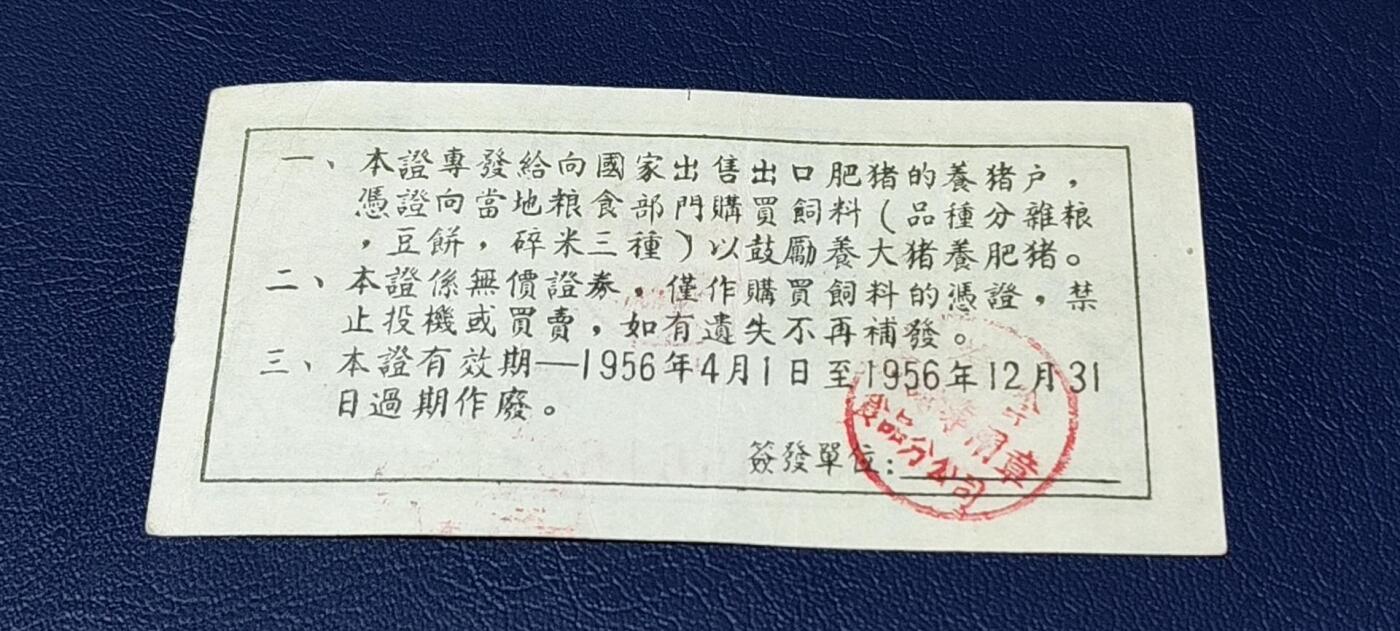 一、本證專發給向國家出售出口肥猪的養猪户，
憑證向當地粮食部門購買飼料（品種分雜粮
，豆餅，碎米三種）以鼓勵養大猪養肥猪。
二、本證係無價證券，僅作購買飼料的憑證，禁
止投機或買賣，如有遺失不再補發。
三、本證有效期—1956年4月1日至1956年12月31
日過期作廢。
簽發單位：
用章
食品分公司